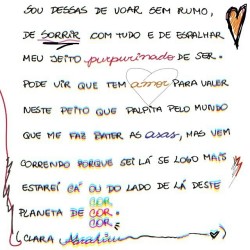 SOU DESSAS DE VOAR SEM RUMO,
DE SORRIR COM TUDO E DE ESPALHAR
MEU JEITO purpurinado DE SER.
PODE VIR QUE TEM amor PARA VALER
NESTE PEITO QUE PALPITA PELO MUNDO
QUE ME FAZ BATER AS asas, MAS VEM
CORRENDO PORQUE SEI LÁ SE LOGO MAIS
ESTAREI CÁ OU DO LADO DE LÁ DESTE
COR.
PLANETA DE COR.
COR.
(CLARA